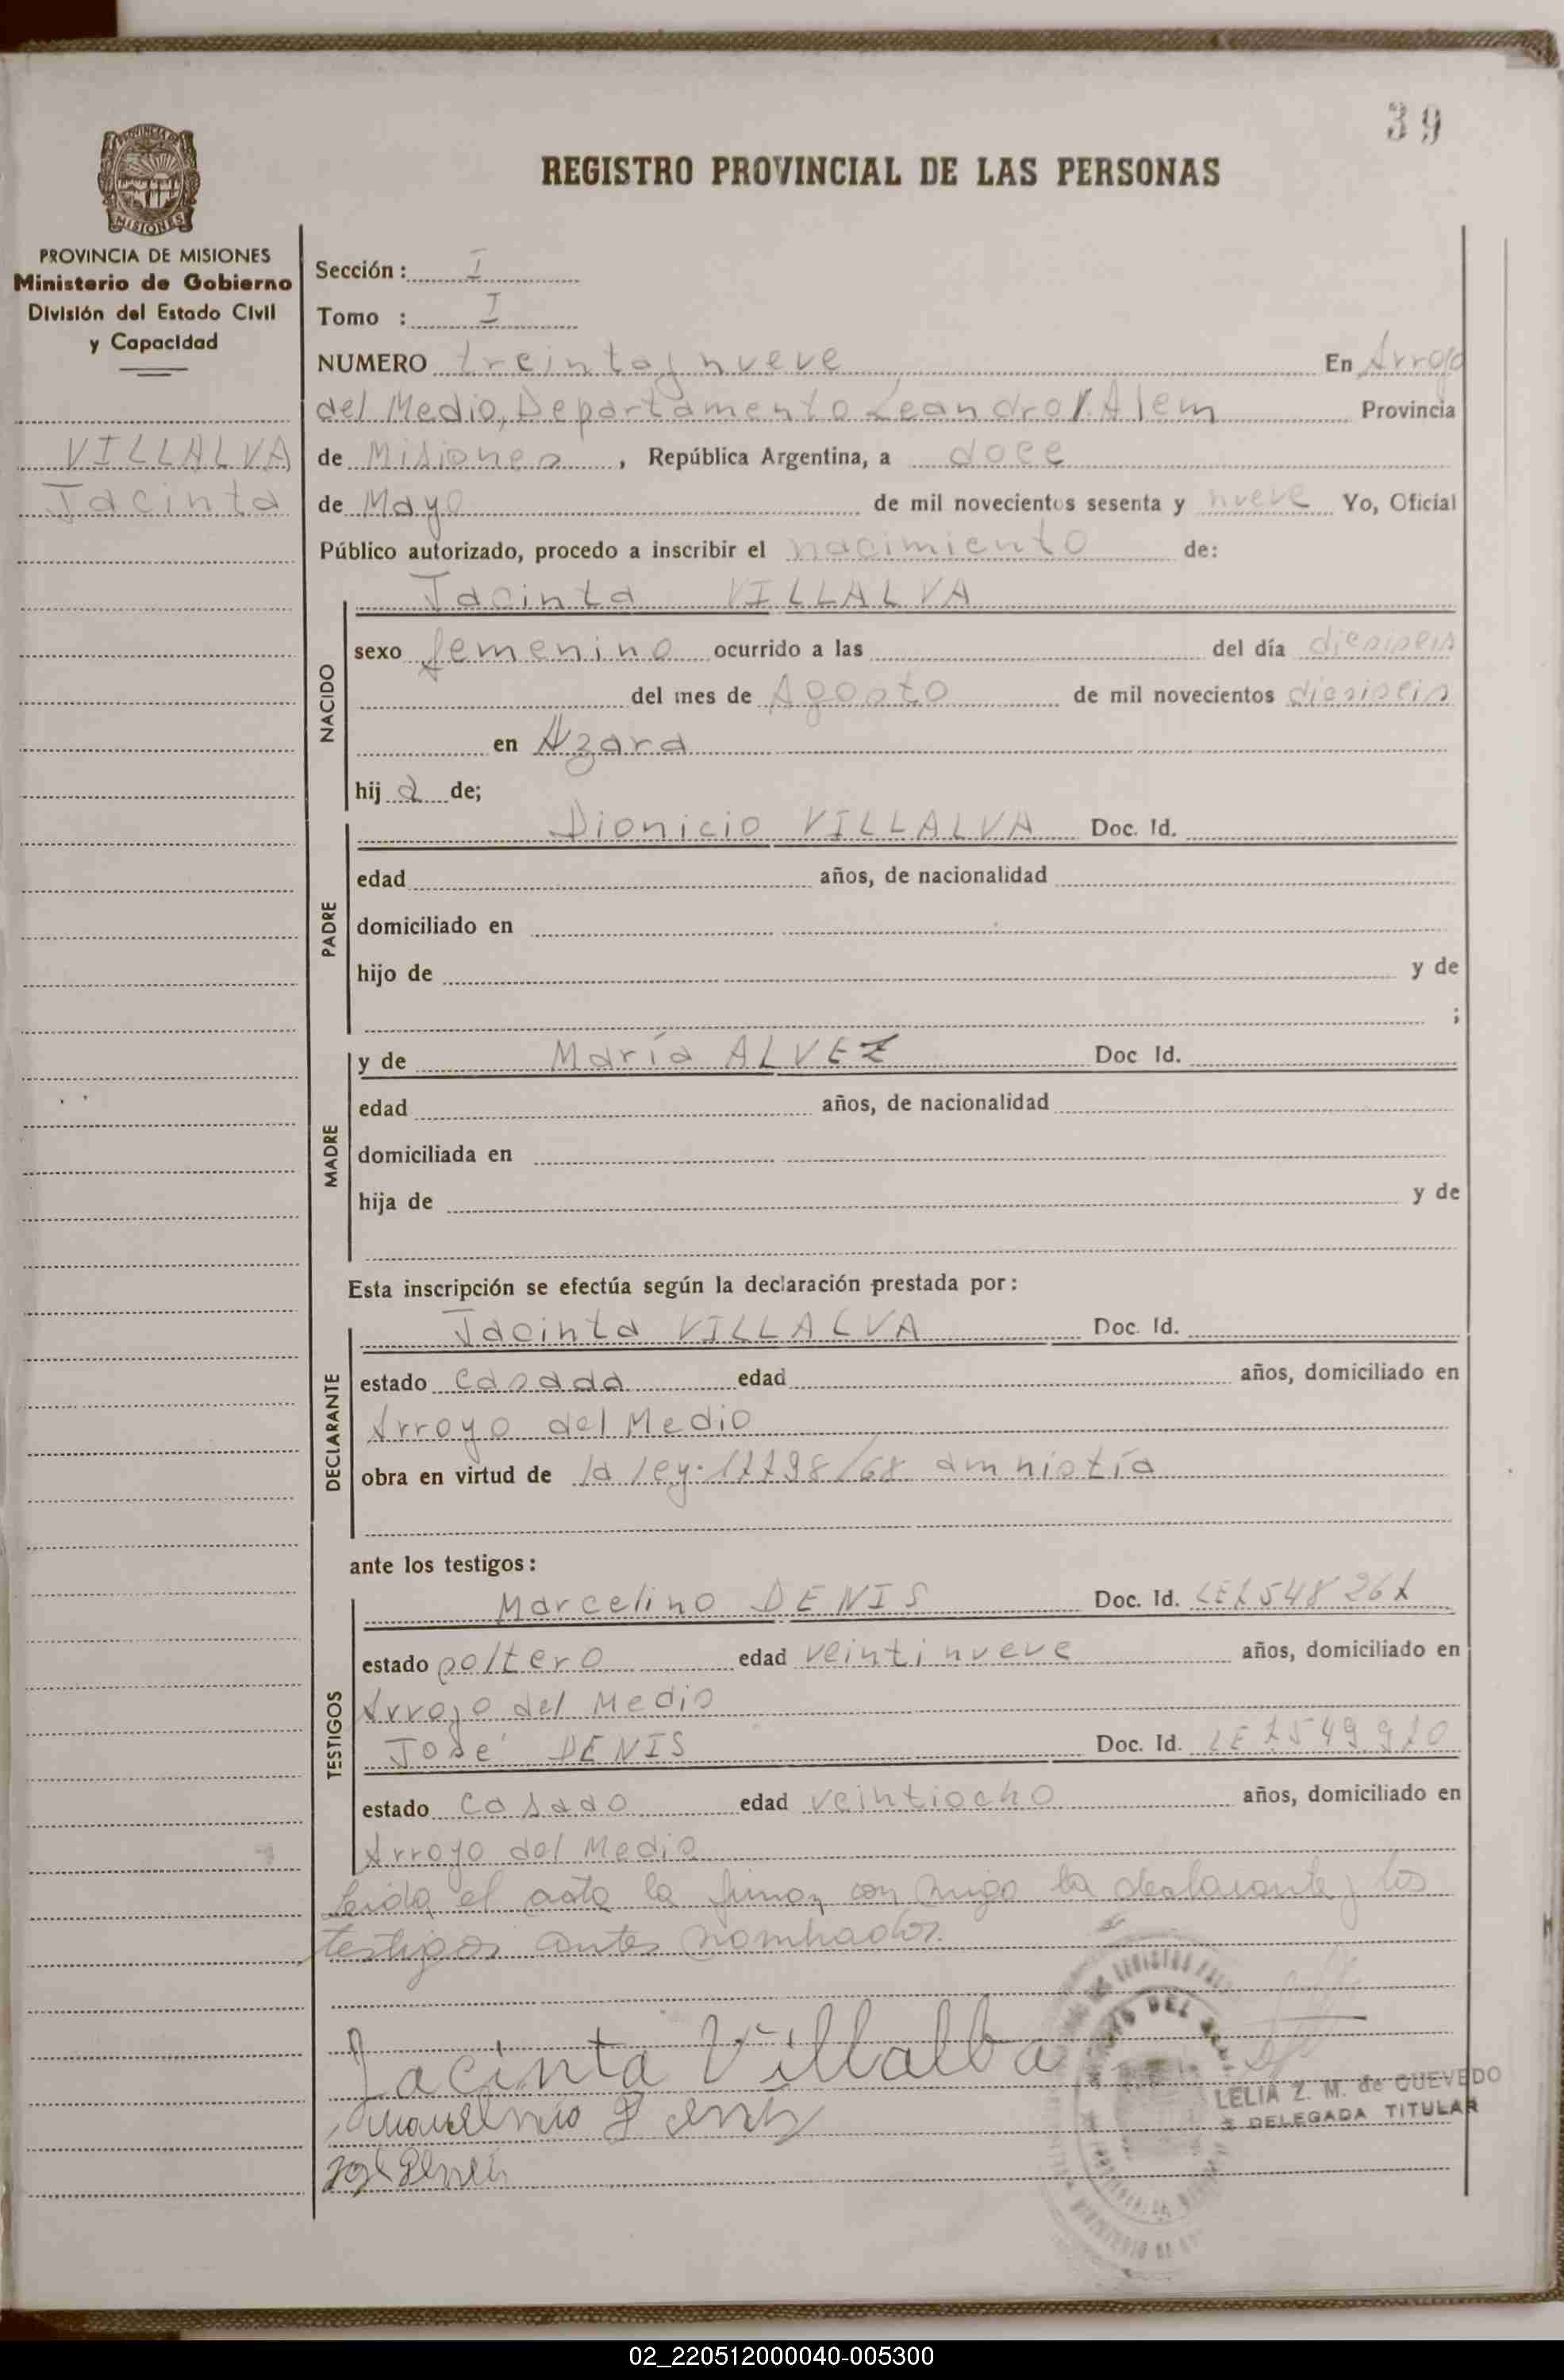 39
PROVINCIA DE
MISIONES
REGISTRO PROVINCIAL DE LAS PERSONAS
PROVINCIA DE MISIONES
Ministerio de Gobierno
División del Estado Civil
y Capacidad
VILLALVA
Jacinta
Sección: I
Tomo : I
NUMERO treinta y nueve En Arroyo
del Medio, Departamento Leandro N. Alem Provincia
de Misiones, República Argentina, a doce
de Mayo de mil novecientos sesenta y nueve Yo, Oficial
Público autorizado, procedo a inscribir el nacimiento de:
NACIDO
Jacinta VILLALVA
sexo femenino ocurrido a las del día diesiseis
del mes de Agosto de mil novecientos diesiseis
en Azara
hij a de;
PADRE
Dionicio VILLALVA Doc. Id.
edad años, de nacionalidad
domiciliado en
hijo de y de
;
MADRE
y de María ALVEZ Doc Id.
edad años, de nacionalidad
domiciliada en
hija de y de
Esta inscripción se efectúa según la declaración prestada por:
DECLARANTE
Jacinta VILLALVA Doc. Id.
estado casada edad años, domiciliado en
Arroyo del Medio
obra en virtud de la ley. 17798/68 amnistía
ante los testigos:
TESTIGOS
Marcelino DENIS Doc. Id.
estado soltero edad veintinueve años, domiciliado en
Arroyo del Medio
José DENIS Doc. Id.
estado casado edad veintiocho años, domiciliado en
Arroyo del Medio
Leida el acta la firman con migo la declarante y los
testigos antes nombrados.
Jacinta Villalba
LELIA Z. M. de QUEVEDO
DELEGADA TITULAR
02_220512000040-005300